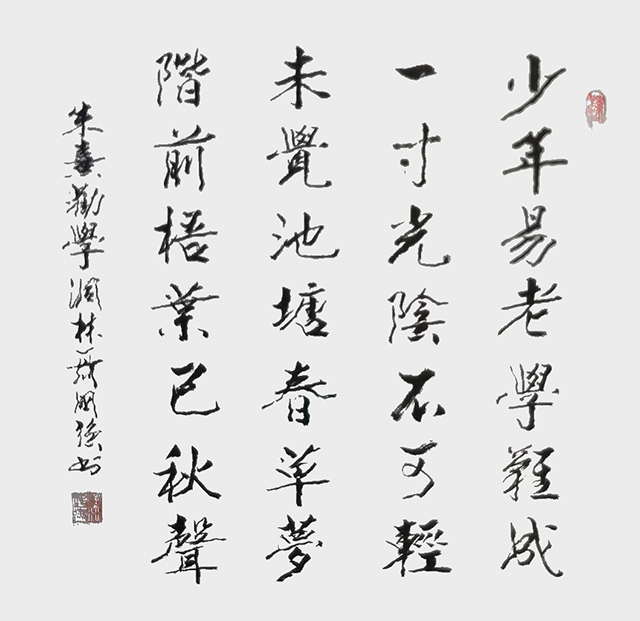 少年易老學難成
一寸光陰不可輕
未覺池塘春草夢
階前梧葉已秋聲
朱熹勸學